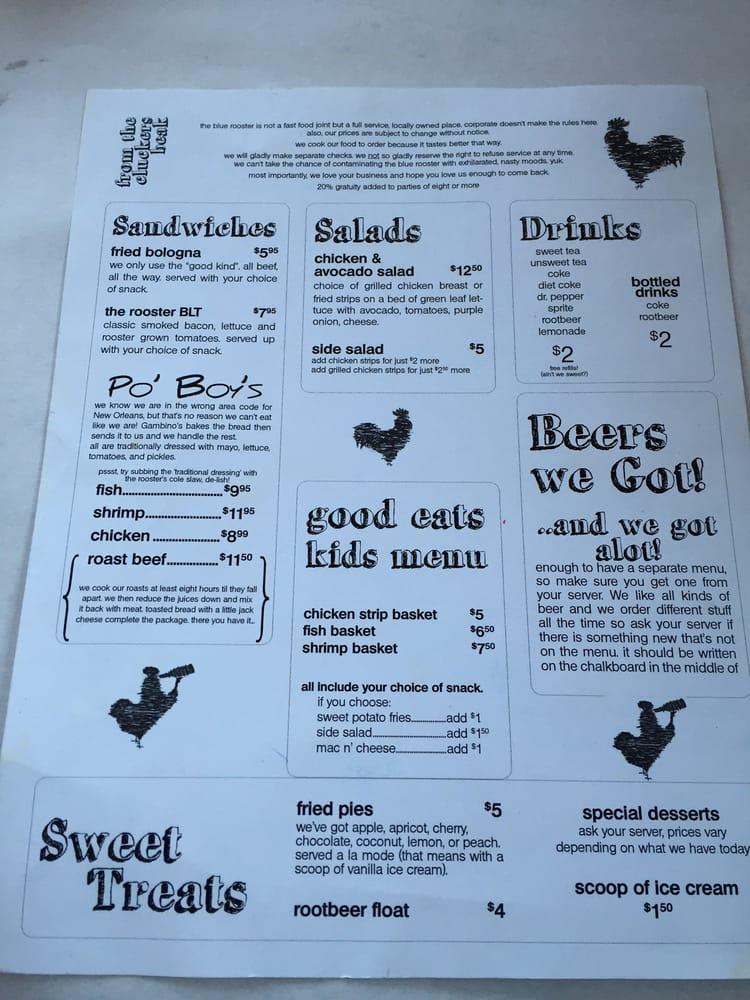 from the
cluckers
beak
the blue rooster is not a fast food joint but a full service, locally owned place. corporate doesn't make the rules here.
also, our prices are subject to change without notice.
we cook our food to order because it tastes better that way.
we will gladly make separate checks. we not so gladly reserve the right to refuse service at any time.
we can't take the chance of contaminating the blue rooster with exhilarated, nasty moods. yuk.
most importantly, we love your business and hope you love us enough to come back.
20% gratuity added to parties of eight or more
Sandwiches
fried bologna $5.95
we only use the "good kind". all beef,
all the way. served with your choice
of snack.
the rooster BLT $7.95
classic smoked bacon, lettuce and
rooster grown tomatoes. served up
with your choice of snack.
Po' Boy's
we know we are in the wrong area code for
New Orleans, but that's no reason we can't eat
like we are! Gambino's bakes the bread then
sends it to us and we handle the rest.
all are traditionally dressed with mayo, lettuce,
tomatoes, and pickles.
pssst, try subbing the 'traditional dressing' with
the rooster's cole slaw, de-lish!
fish..............................$9.95
shrimp.......................$11.95
chicken....................$8.99
roast beef...............$11.50
we cook our roasts at least eight hours til they fall
apart. we then reduce the juices down and mix
it back with meat. toasted bread with a little jack
cheese complete the package. there you have it...
Salads
chicken &
avocado salad $12.50
choice of grilled chicken breast or
fried strips on a bed of green leaf let-
tuce with avocado, tomatoes, purple
onion, cheese.
side salad $5
add chicken strips for just $2 more
add grilled chicken strips for just more
good eats
kids menu
chicken strip basket $5
fish basket $6.50
shrimp basket $7.50
all include your choice of snack.
if you choose:
sweet potato fries...........add $1
side salad.......................add $1.50
mac n' cheese................add $1
Drinks
sweet tea
unsweet tea
coke
diet coke
dr. pepper
sprite
rootbeer
lemonade
$2
free refills!
(ain't we sweet?)
bottled
drinks
coke
rootbeer
$2
Beers
we Got!
..and we got
alot!
enough to have a separate menu,
so make sure you get one from
your server. We like all kinds of
beer and we order different stuff
all the time so ask your server if
there is something new that's not
on the menu. it should be written
on the chalkboard in the middle of
Sweet
Treats
fried pies $5
we've got apple, apricot, cherry,
chocolate, coconut, lemon, or peach.
served a la mode (that means with a
scoop of vanilla ice cream).
rootbeer float $4
special desserts
ask your server, prices vary
depending on what we have today
scoop of ice cream
$1.50